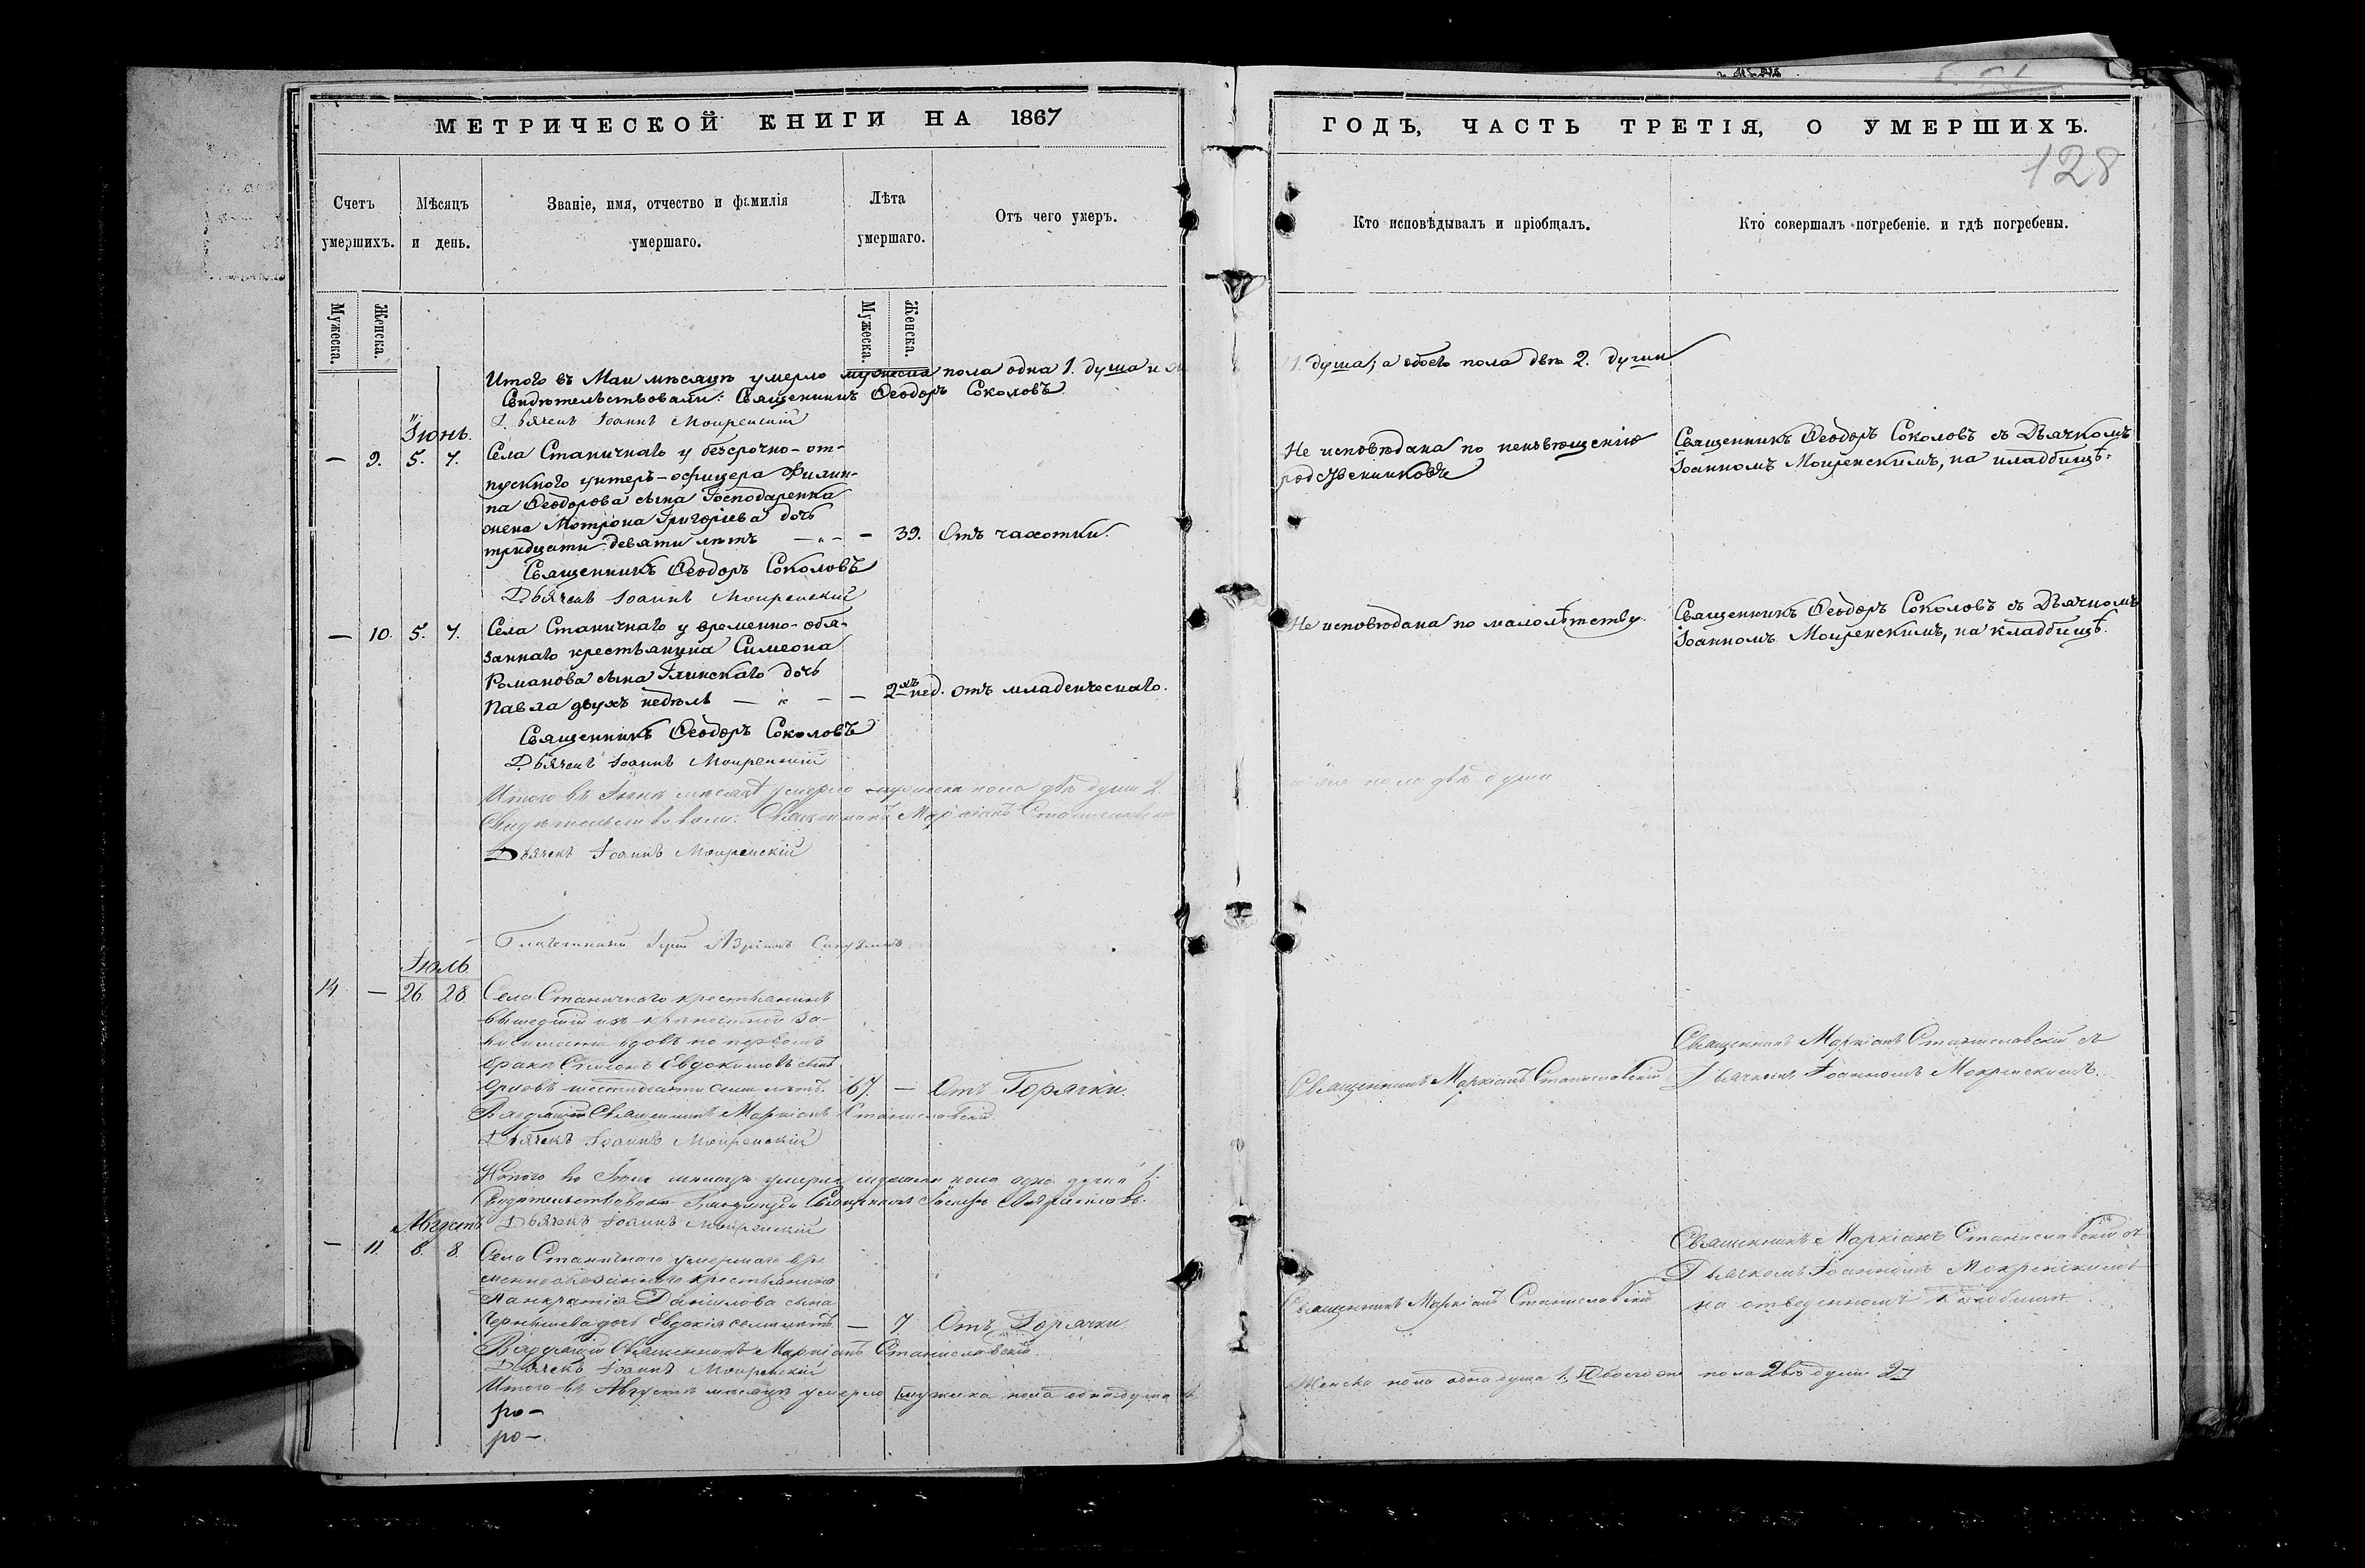 МЕТРИЧЕСКОЙ КНИГИ НА 1867
Счетъ умершихъ.
Мѣсяцъ и день.
Званіе, имя, отчество и фамилія умершаго.
Лѣта умершаго.
Отъ чего умеръ.
Мужеска. Женска.
Мужеска. Женска.
Итого въ Маи мѣсяцѣ умерло мужеска пола одна 1. душа и
Свидѣтельствовали: Священникъ Ѳеодоръ Соколовъ
Дьячекъ Іоаннъ Мокренскій
Іюнь.
— 9. 5. 7. Села Станичнаго у безсрочно-от-
пускного унтеръ-офицера Филип-
па Ѳеодорова сына Господаренка
жена Мотрона Григоріева дочь
тридцати девяти лѣтъ — 39. Отъ чахотки.
Священникъ Ѳеодоръ Соколовъ
Дьячекъ Іоаннъ Мокренскій
— 10. 5. 7. Села Станичнаго у временно-обя-
заннаго крестьянина Симеона
Романова сына Глинскаго дочь
Павла двухъ недѣль — 2хъ нед. отъ младенческаго.
Священникъ Ѳеодоръ Соколовъ
Дьячекъ Іоаннъ Мокренскій
Итого въ Іюнѣ мѣсяцѣ умерло пола двѣ души 2
Свидѣтельствовали: Священникъ Маркіанъ Станиславскій
Дьячекъ Іоаннъ Мокренскій
Іюль
14 — 26 28 Села Станичнаго крестьянинъ
вышедшій изъ крѣпостной за-
висимости вдовъ по первомъ
бракѣ Евдокимовъ сынъ
шестидесяти семи лѣтъ. 67. — Отъ Горячки.
Священникъ Маркіанъ Станиславскій
Дьячекъ Іоаннъ Мокренскій
Итого въ Іюлѣ мѣсяцѣ умерло мужеска пола одна душа 1.
Свидѣтельствовали Священникъ
Дьячекъ Іоаннъ Мокренскій
Августъ
— 11. 6. 8. Села Станичнаго умершаго вре-
менно обязаннаго крестьянина
Панкратія Даніилова сына
дочь Евдокія семи лѣтъ — 7 Отъ Горячки
Священникъ Маркіанъ Станиславскій.
Дьячекъ Іоаннъ Мокренскій
Итого въ Августѣ мѣсяцѣ умерло мужеска пола одна душа 1
ро —
ро —
ГОДЪ, ЧАСТЬ ТРЕТІЯ, О УМЕРШИХЪ.
128
Кто исповѣдывалъ и пріобщалъ.
Кто совершалъ погребеніе. и гдѣ погребены.
1. душа; а обоего пола двѣ 2. души
Не исповѣдана по неизвѣщенію
родственниковъ
Священникъ Ѳеодоръ Соколовъ съ Дьячкомъ
Іоанномъ Мокренскимъ, на кладбищѣ.
Не исповѣдана по малолѣтству.
Священникъ Ѳеодоръ Соколовъ съ Дьячкомъ
Іоанномъ Мокренскимъ, на кладбищѣ.
пола двѣ души
Священникъ Маркіанъ Станиславскій
Священникъ Маркіанъ Станиславскій съ
Дьячкомъ Іоанномъ Мокренскимъ.
Священникъ Маркіанъ Станиславскій
Священникъ Маркіанъ Станиславскій съ
Дьячкомъ Іоанномъ Мокренскимъ
на отведенномъ кладбищѣ
Женска пола одна душа 1. Обоего пола двѣ души 2